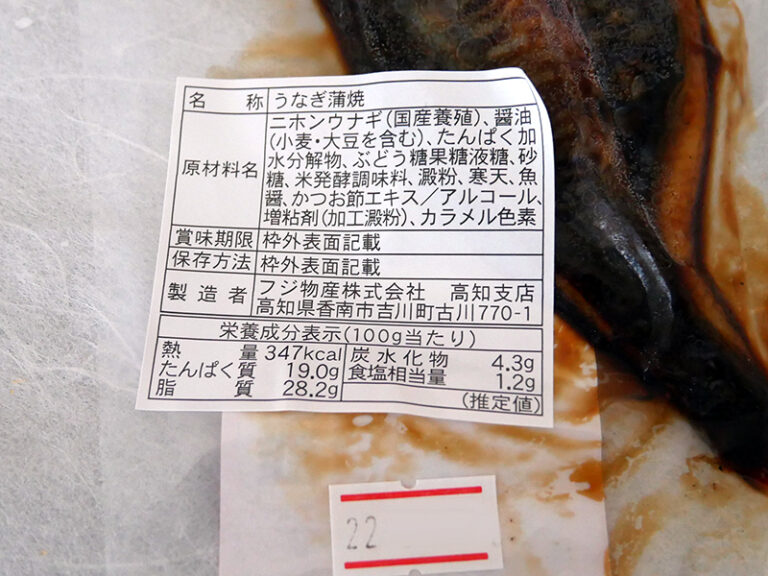 名称 うなぎ蒲焼
原材料名 ニホンウナギ(国産養殖)、醤油
(小麦・大豆を含む)、たんぱく加
水分解物、ぶどう糖果糖液糖、砂
糖、米発酵調味料、澱粉、寒天、魚
醤、かつお節エキス/アルコール、
増粘剤(加工澱粉)、カラメル色素
賞味期限 枠外表面記載
保存方法 枠外表面記載
製造者 フジ物産株式会社 高知支店
高知県香南市吉川町古川770-1
栄養成分表示(100g当たり)
熱量 347kcal 炭水化物 4.3g
たんぱく質 19.0g 食塩相当量 1.2g
脂質 28.2g
(推定値)
22